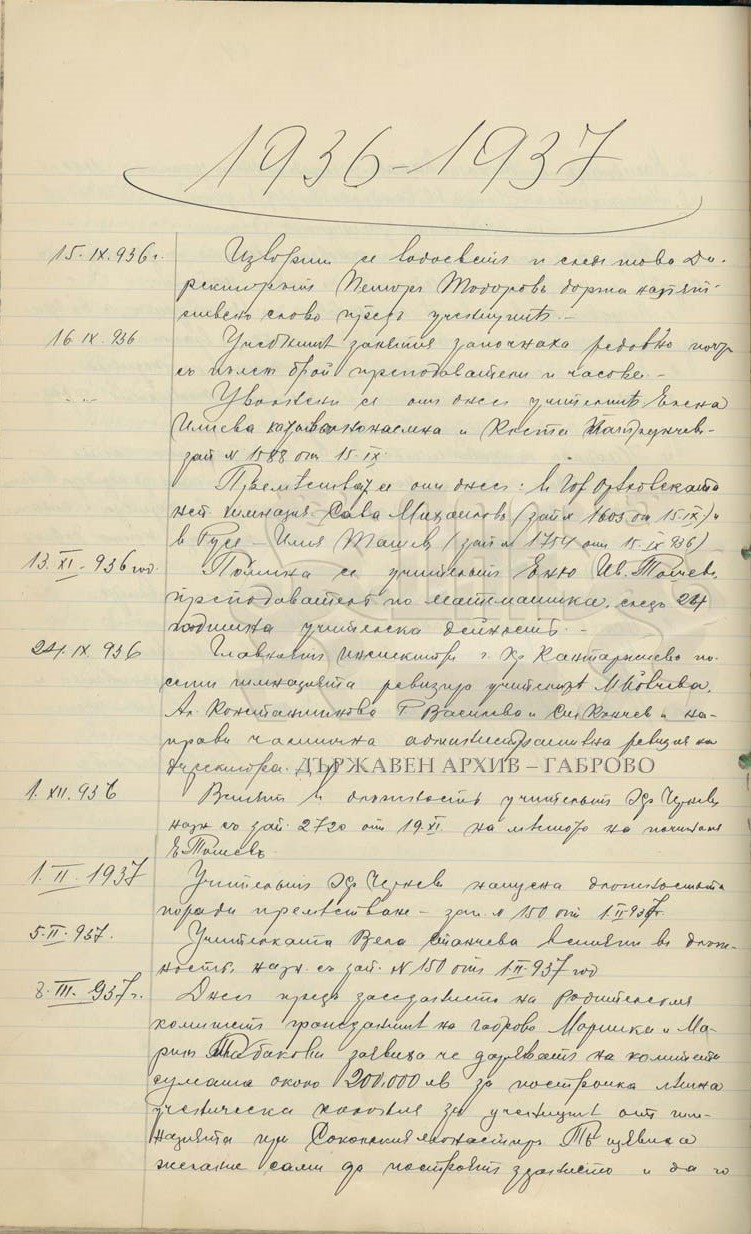 1936-1937
15.IX.936г. Извърши се водосвет и след това Ди-
ректорътъ Петоръ Тодоровъ държа напѫт-
ствено слово предъ ученицитѣ. —
16 IX. 936 Учебнитѣ занятия започнаха редовно
съ пъленъ брой преподаватели и часове. —
Уволнени сѫ отъ днесъ учителитѣ Елена
Илиева и Коста
зап № 1588 отъ 15.IX.
Премѣстватъ се отъ днесъ: въ Гор Орѣховската
неп. гимназия Сава Михаиловъ (зап № 1603 отъ 15.IX) и
въ Русе — Илия Ташевъ (зап № 1754 отъ 15.IX 936)
13. XI - 936 год. Помина се учительтъ Еню Ив. Тошевъ,
преподаватель по математика, следъ 24
годишна учителска дейность. —
24. IX 936 Главниятъ инспекторъ г. Хр Кантарджиевъ по-
сети гимназията ревизира учителитѣ М Йовчева,
Ал. Константинова Г Василева и Ст. Кънчев и на-
прави частична административна ревизия на
директора.
ДЪРЖАВЕН АРХИВ – ГАБРОВО
1. XII. 936 Встѫпи въ длъжность учительтъ Хр Чернев
назн съ зап. 2720 отъ 19.XI. на мѣстото на починалия
Е. Тошевъ
1. II. 1937 Учительтъ Хр Чернев напусна длъжностьта
поради премѣстване — зап. № 150 отъ 1.II.937г.
5.II.937. Учителката Вела Станчева встѫпи въ длъж-
ность, назн. съ зап. № 150 отъ 1.II.937 год
8. III. 937г. Днесъ предъ заседанието на Родителския
комитетъ гражданитѣ на Габрово Маришка и Ма-
рин Табакови заявиха че даряватъ на комитета
сумата около 200,000 лв за постройка лѣтна
ученическа колония за ученицитѣ отъ гим-
назията при Соколския монастиръ Тѣ изявиха
желание сами да построятъ зданието и да го